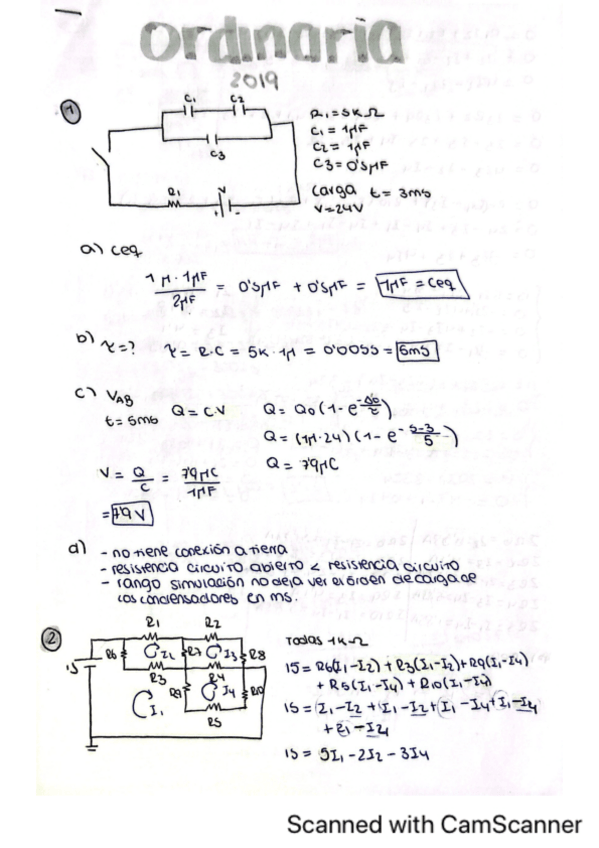 ordinaria
2019
1
C1
C2
C3
R1
V
+
-
R1=5KΩ
C1 = 1μF
C2 = 1μF
C3 = 0'5μF
Carga t = 3ms
V=24V
a) Ceq
1μ · 1μF / 2μF = 0'5μF + 0'5μF = 1μF = Ceq
b) τ=? τ = R·C = 5K · 1μ = 0'005s = 5ms
c) VAB
t = 5ms
Q = C·V
Q = Q0 (1 - e^-Δt/τ)
Q = (1μ·24) (1 - e^- 5-3/5)
Q = 7'9μC
V = Q/C = 7'9μC / 1μF
= 7'9 V
d) - no tiene conexión a tierra
- resistencia circuito abierto < resistencia circuito
- rango simulación no deja ver el orden de carga de
los condensadores en ms.
2
R1
R2
15
R6
I2
R7
I3
R8
R3
R4
R9
I4
R10
I1
R5
Todas 1KΩ
15 = R6(I1-I2) + R3(I1-I2)+R9(I1-I4)
+ R5(I1-I4) + R10(I1-I4)
15 = I1-I2 + I1-I2 + I1-I4 + I1-I4
15 = 5I1 - 2I2 - 3I4
Scanned with CamScanner